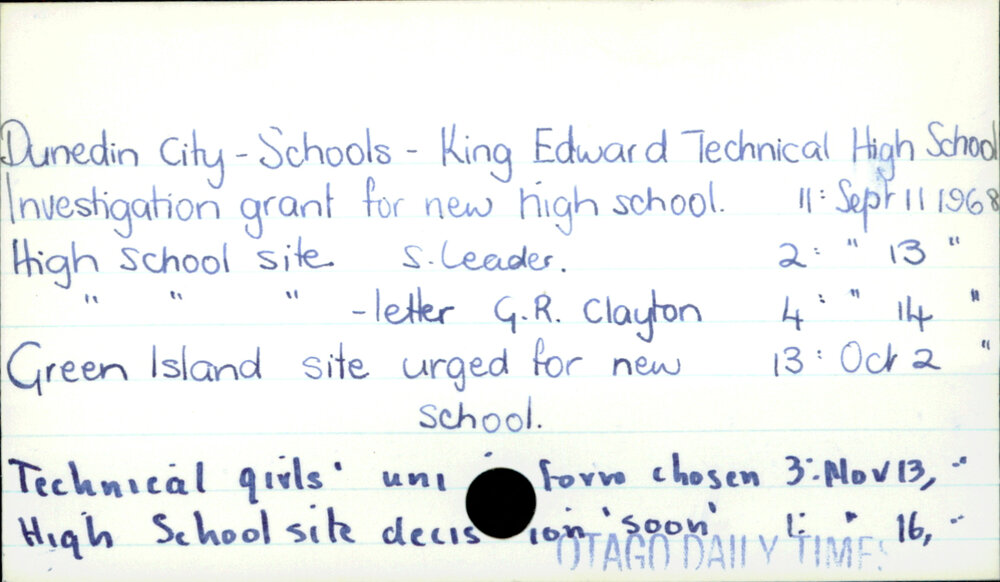 Dunedin City - Schools - King Edward Technical High School
Investigation grant for new high school. 11: Sept 11 1968
High school site S. Leader. 2: " 13 "
" " " - letter G.R. Clayton 4: " 14 "
Green Island site urged for new 13: Oct 2 "
school.
Technical girls' uni form chosen 3: Nov 13, "
High School site decis ion 'soon' 1: " 16, "
OTAGO DAILY TIMES